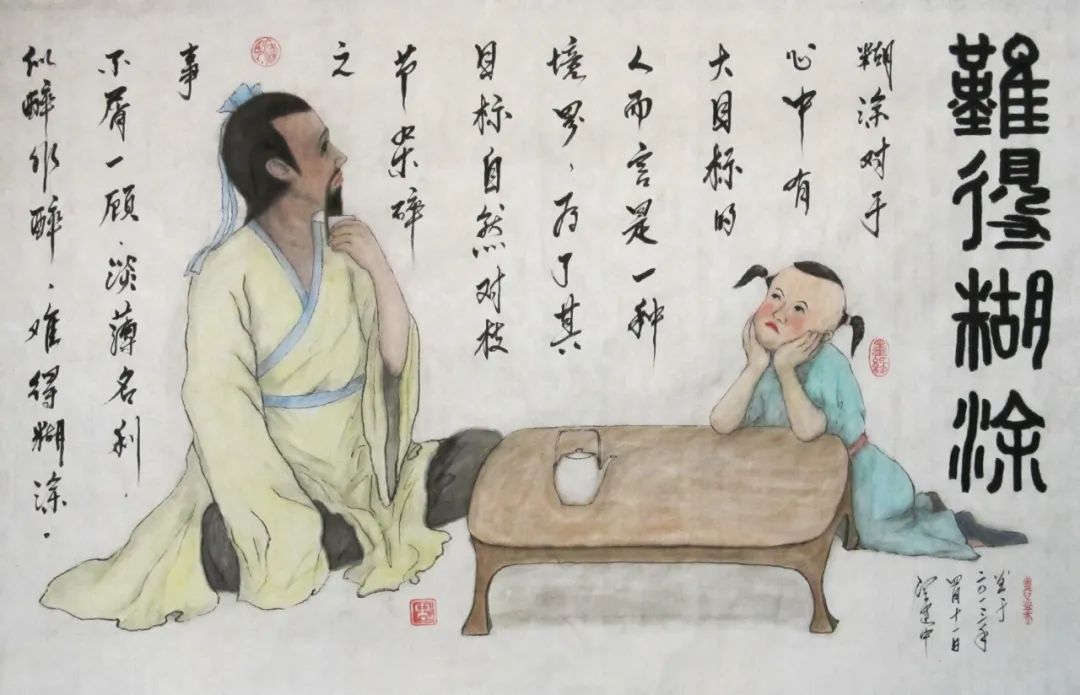 難得糊涂
糊涂对于
心中有
大目标的
人而言是一种
境界、为了其
目标自然对枝
节碎
之
事
不屑一顾.淡薄名利.
似醉非醉.难得糊涂.
于
二〇一三年
四月十一日
建中